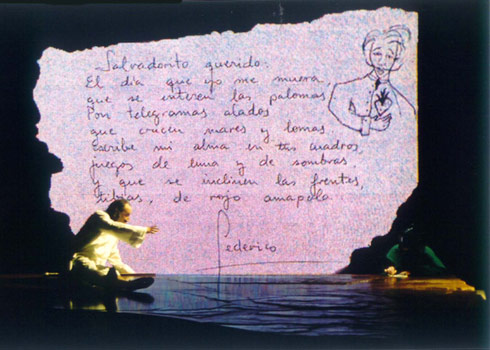 Salvadorito querido:
El día que yo me muera
que se enteren las palomas
Por telegramas alados
que crucen mares y lomas
Escribe mi alma en tus cuadros
juegos de luna y de sombras,
y que se inclinen las frentes,
tibias, de rojo amapola.
Federico